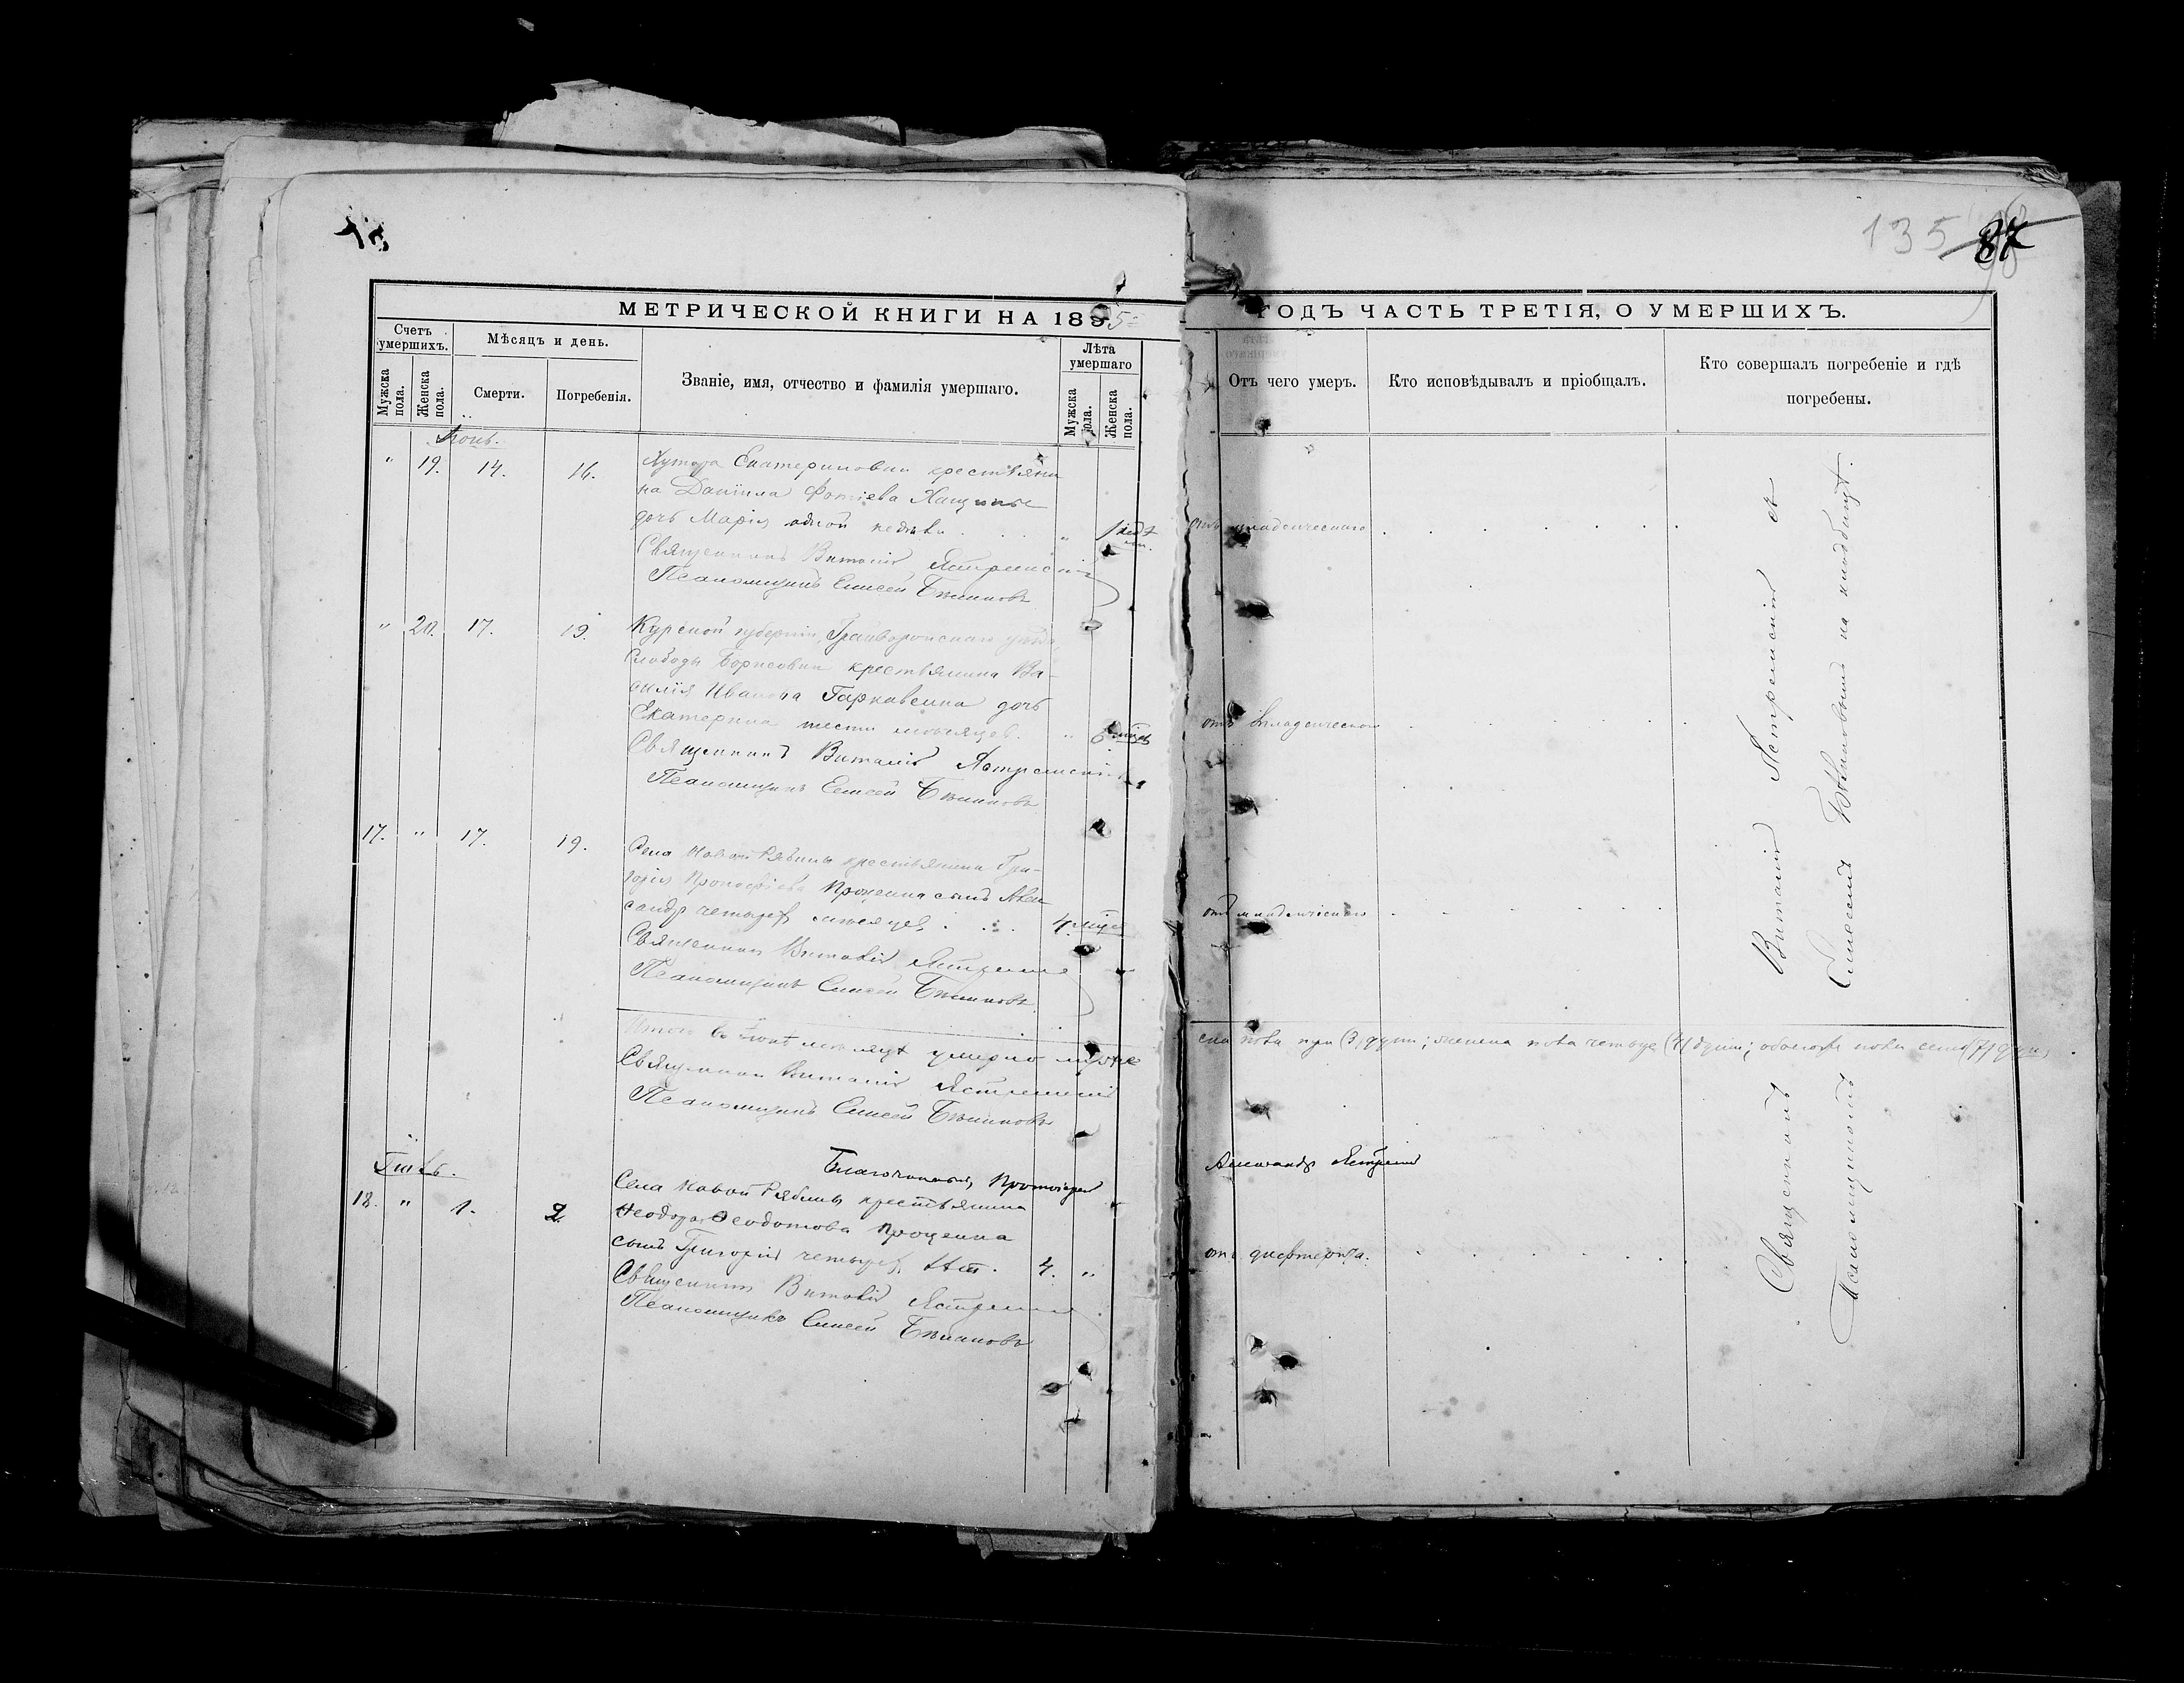 135 87
МЕТРИЧЕСКОЙ КНИГИ НА 1895 ГОДЪ ЧАСТЬ ТРЕТІЯ, О УМЕРШИХЪ.
Счетъ умершихъ.
Мужска пола.
Женска пола.
Мѣсяцъ и день.
Смерти.
Погребенія.
Званіе, имя, отчество и фамилія умершаго.
Лѣта умершаго
Мужска пола.
Женска пола.
Отъ чего умеръ.
Кто исповѣдывалъ и пріобщалъ.
Кто совершалъ погребеніе и гдѣ погребены.
Іюнь.
" 19. 14. 16.
Хутора Екатериновки крестьяни
на Даніила Фотіева
дочь Марія одной недѣли " 1
отъ младенческаго
Священникъ Виталій Ястремскій
Псаломщикъ Елисей Бѣлиновъ
" 20. 17. 19.
Курской губерніи, Грайворонскаго уѣзда
Слободы Борисовки крестьянина Ва-
силія Иванова Гаркавенка дочь
Екатерина шести мѣсяцевъ. " 6 мѣс
отъ младенческаго
Священникъ Виталій Ястремскій
Псаломщикъ Елисей Бѣлиновъ
17. " 17. 19.
Села Новой Рябины крестьянина Гри-
горія Прокофіева Проценка сынъ Алек
сандръ четырехъ мѣсяцевъ 4 мѣс
отъ младенческаго
Священникъ Виталій Ястремскій
Псаломщикъ Елисей Бѣлиновъ
Итого въ Іюнѣ мѣсяцѣ умерло муже
ска пола три (3) души; женска пола четыре (4) души; обоего пола семь (7) душъ
Священникъ Виталій Ястремскій
Псаломщикъ Елисей Бѣлиновъ
Благочинный, Протоіерей Александръ
Іюль.
18. " 1. 2.
Села Новой Рябины крестьянина
Ѳеодора Ѳеодотова Проценка
сынъ Григорій четырехъ лѣтъ. 4. "
отъ дифтерита.
Священникъ Виталій Ястремскій
Псаломщикъ Елисей Бѣлиновъ
Священникъ Виталій Ястремскій съ
Псаломщикомъ Елисеемъ Бѣлиновымъ на кладбищѣ.